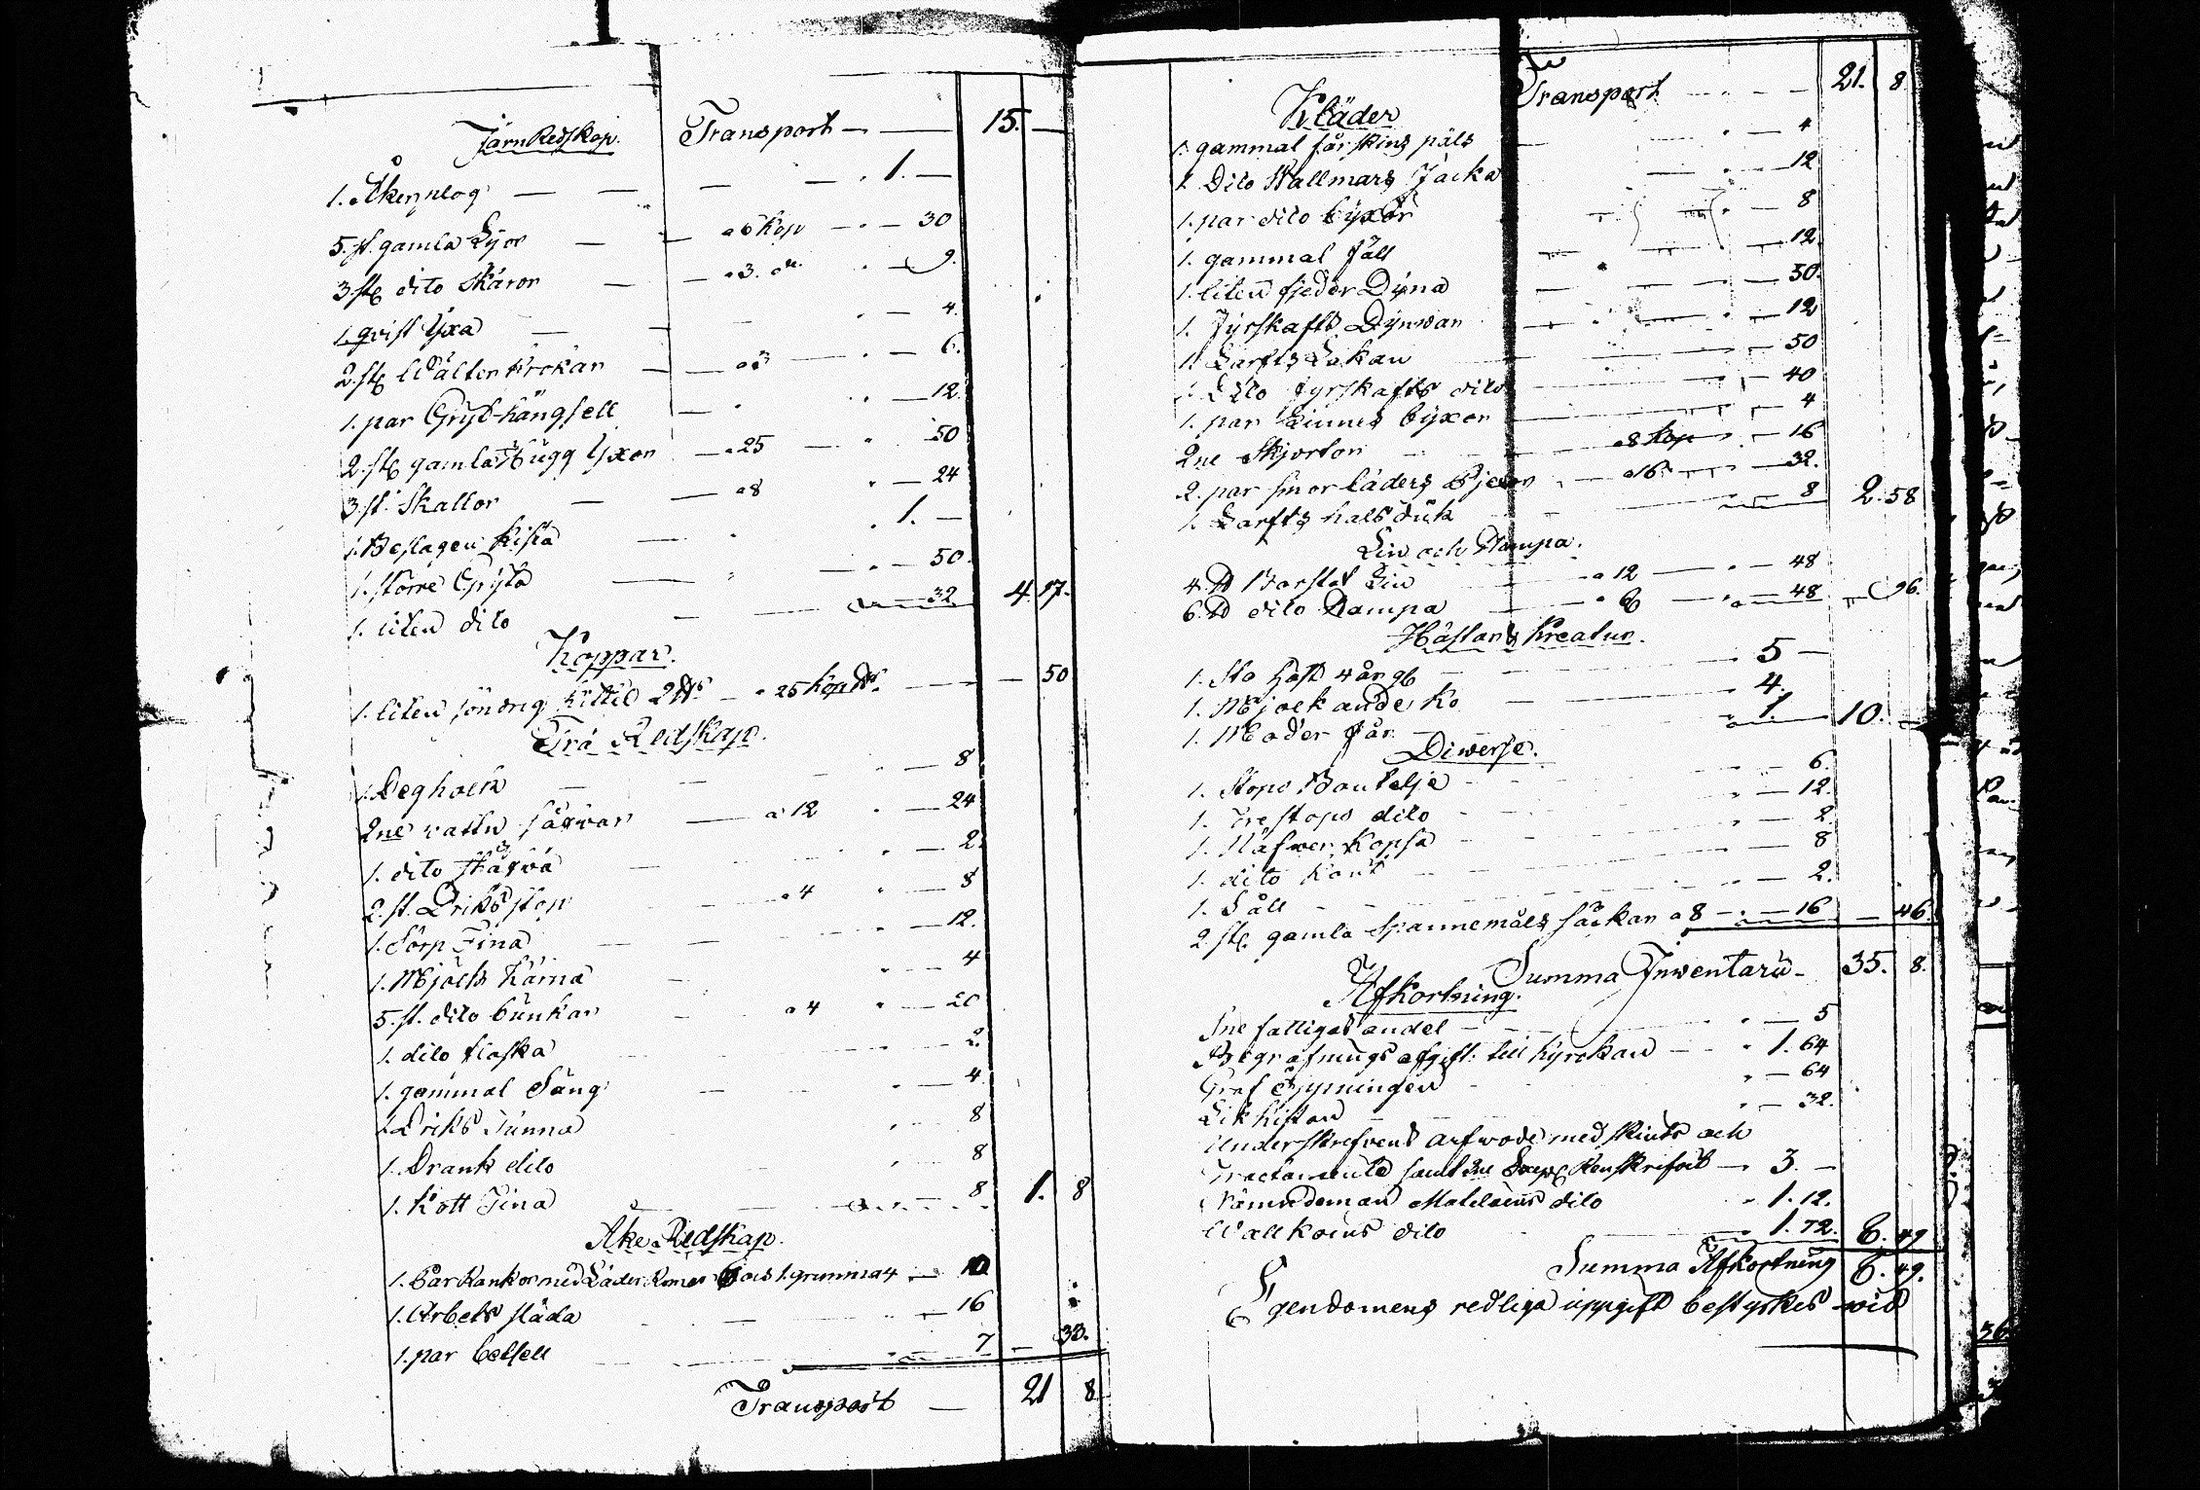 Järn Redskap. Transport — — 15. —
1. Åkerplog — — — — 1. —
5. st. gamla Lÿor — — a 6 kop — — 30
3. st. dito Skäror — — a 3. — 9.
1. qvist Ÿxa — — — 4.
2. st. Wälten krokar — — a 3 — — 6.
1. par Grÿt-hängsell — — 12.
2. st. gamla Hugg Ÿxor — a 25 — 50
3. st. Skallor — — a 8 — 24
1. Beslagen kista — 1. —
1. större Grÿta — 50.
1. liten dito — — 32 4. 17.
Koppar.
1. liten söndrig kittel 2 — a 25 kop — — 50
Trä Redskap.
1. Deghoeh — — 8
2ne vattu såwar — a 12 — 24
1. dito skåpa — 2.
2. st. Driks stop — a 4 — 8
1. Sörp Tina — — 12.
1. Mjölk kärna — 4
5. st. dito bunkar — a 4 — 20
1. dito flaska — 2.
1. gammal Säng — 4
1. Driks Tunna — 8
1. Drank dito — 8
1. kött Tina — — 8 1. 8
Åke Redskap.
1. Bår kankor med Läder — 10
1. Arbets släda — 16
1. par betsell — 7 — 33.
Transport — 21 8
Kläder Transport — — 21. 8.
1. gammal fårskins päls — 4
1. Dito Wallmars Jacka — 12
1. par dito bÿxor — 8
1. gammal fäll — 12.
1. liten fjeder Dÿna — 50.
1. fÿrskafts Dÿnwar — 12
1. Larfts Lakan — 50
1. Dito fyrskafts dito — 40
1. par Linnes bÿxor — 4
2ne Skjortor — a 8 kop — 16
2. par smorläders — a 16 — 32.
1. Larfts halsduk — 8 2. 58
Lin och Hampa.
4. Borstat Lin — a 12 — 48
6. dito Hampa — a 8 — 48 — 96.
Hästar & Kreatur.
1. Sto häst 4 år gl — 5 —
1. Mjölkande ko — 4.
1. Moder får — 1. 10. —
Diwerse.
1. Stops Boutelje — 6.
1. Tre stops dito — 12.
1. Näfwer kopsa — 2
1. dito kont — 8
1. Såll — 2.
2. st. gamla spannemåls säckar a 8 — — 16 — 46.
Summa Inwentarii — 35. 8.
Afkortning.
Ine fattigas andel — 5
Begrafnings afgift: till kyrckan — 1. 64
Graf Öppningen — 64
Likkistan — 32.
Underskrefvens arfwode med skiuts och
Tractamente samt Renskrifvit — 3. —
Nämndeman dito — 1. 12.
dito — 1. 72. 6. 49
Summa Afkortning 6. 49.
Egendomens redliga uppgift bestyrkes wid
36